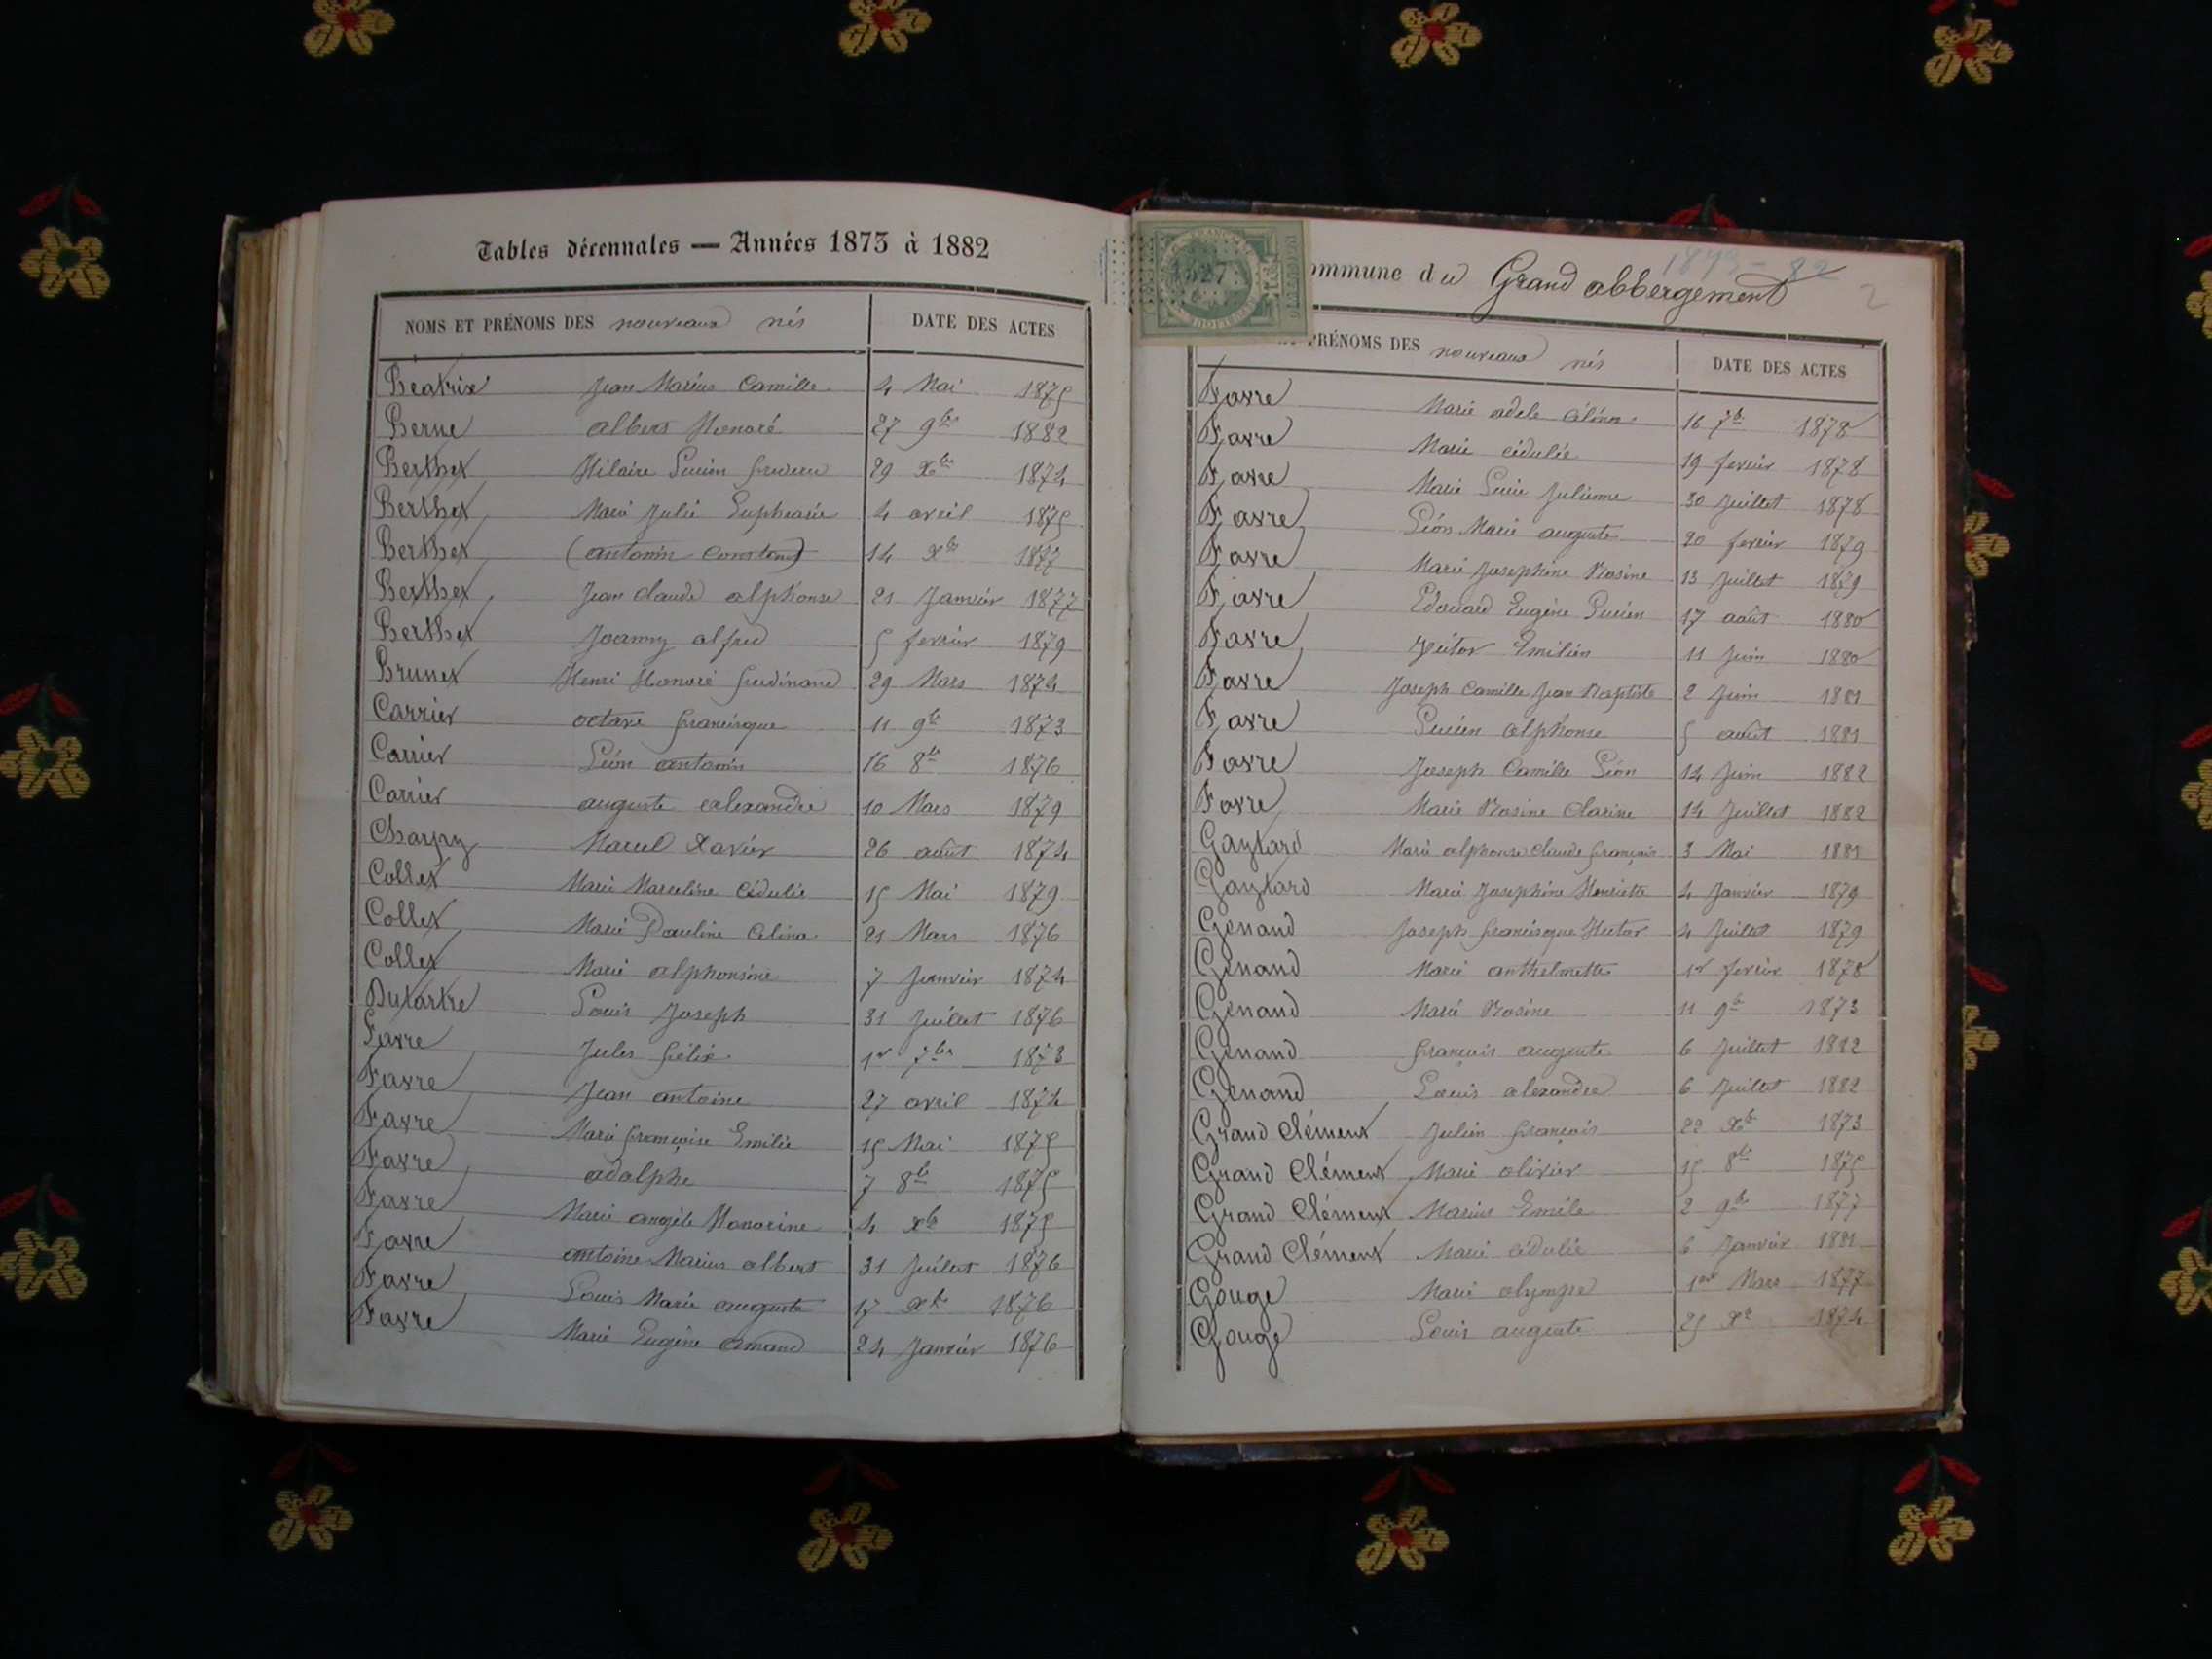 Tables décennales — Années 1873 à 1882
NOMS ET PRÉNOMS DES nouveaux nés DATE DES ACTES
Béatrix Jean Marius Camille 4 Mai 1875
Berne albert Honoré 27 9bre 1882
Berthet Hilaire Lucien 29 Xbre 1874
Berthet Marie Julie Euphrasie 4 avril 1875
Berthet (antonin Constant) 14 Xbre 1877
Berthet Jean Claude alphonse 21 Janvier 1877
Berthet Joanny alfred 5 fevrier 1879
Brunet Henri Honoré ferdinand 29 Mars 1874
Carrier octave francisque 11 9bre 1873
Carrier Léon antonin 16 8bre 1876
Carrier auguste alexandre 10 Mars 1879
Charpy Marcel Xavier 26 août 1874
Collet Marie Marceline Cédulie 15 Mai 1879
Collet Marie Pauline Celina 21 Mars 1876
Collet Marie alphonsine 7 Janvier 1874
Dutartre Louis Joseph 31 Juillet 1876
Favre Jules félix 1er 7bre 1873
Favre Jean antoine 27 avril 1874
Favre Marie françoise Emilie 15 Mai 1875
Favre adolphe 7 8bre 1875
Favre Marie angèle Honorine 4 Xbre 1875
Favre antoine Marius albert 31 Juillet 1876
Favre Louis Marie auguste 17 Xbre 1876
Favre Marie Eugène armand 24 Janvier 1876
1873 - 82
ommune du Grand abbergement 2
1527
PRÉNOMS DES nouveaux nés DATE DES ACTES
Favre Marie adele Célina 16 7bre 1878
Favre Marie cédulie 19 fevrier 1878
Favre Marie Lucie Julienne 30 Juillet 1878
Favre Léon Marie auguste 20 fevrier 1879
Favre Marie Josephine Rosine 13 Juillet 1879
Favre Edouard Eugène Lucien 17 août 1880
Favre Victor Emilien 11 Juin 1880
Favre Joseph Camille Jean Baptiste 2 Juin 1881
Favre Lucien alphonse 5 août 1881
Favre Joseph Camille Léon 14 Juin 1882
Favre Marie Rosine Clarisse 14 Juillet 1882
Gaytard Marie alphonse Claude françois 3 Mai 1881
Gaytard Marie Josephine Henriette 4 Janvier 1879
Génand Joseph francisque Hector 4 Juillet 1879
Génand Marie anthelmette 1er fevrier 1878
Génand Marie Rosine 11 9bre 1873
Génand françois auguste 6 Juillet 1882
Génand Louis alexandre 6 Juillet 1882
Grand Clément Julien françois 22 Xbre 1873
Grand Clément Marie olivier 15 8bre 1875
Grand Clément Marius Emile 2 9bre 1877
Grand Clément Marie cédulie 6 Janvier 1881
Gouge Marie olympe 1er Mars 1877
Gouge Louis auguste 25 Xbre 1874